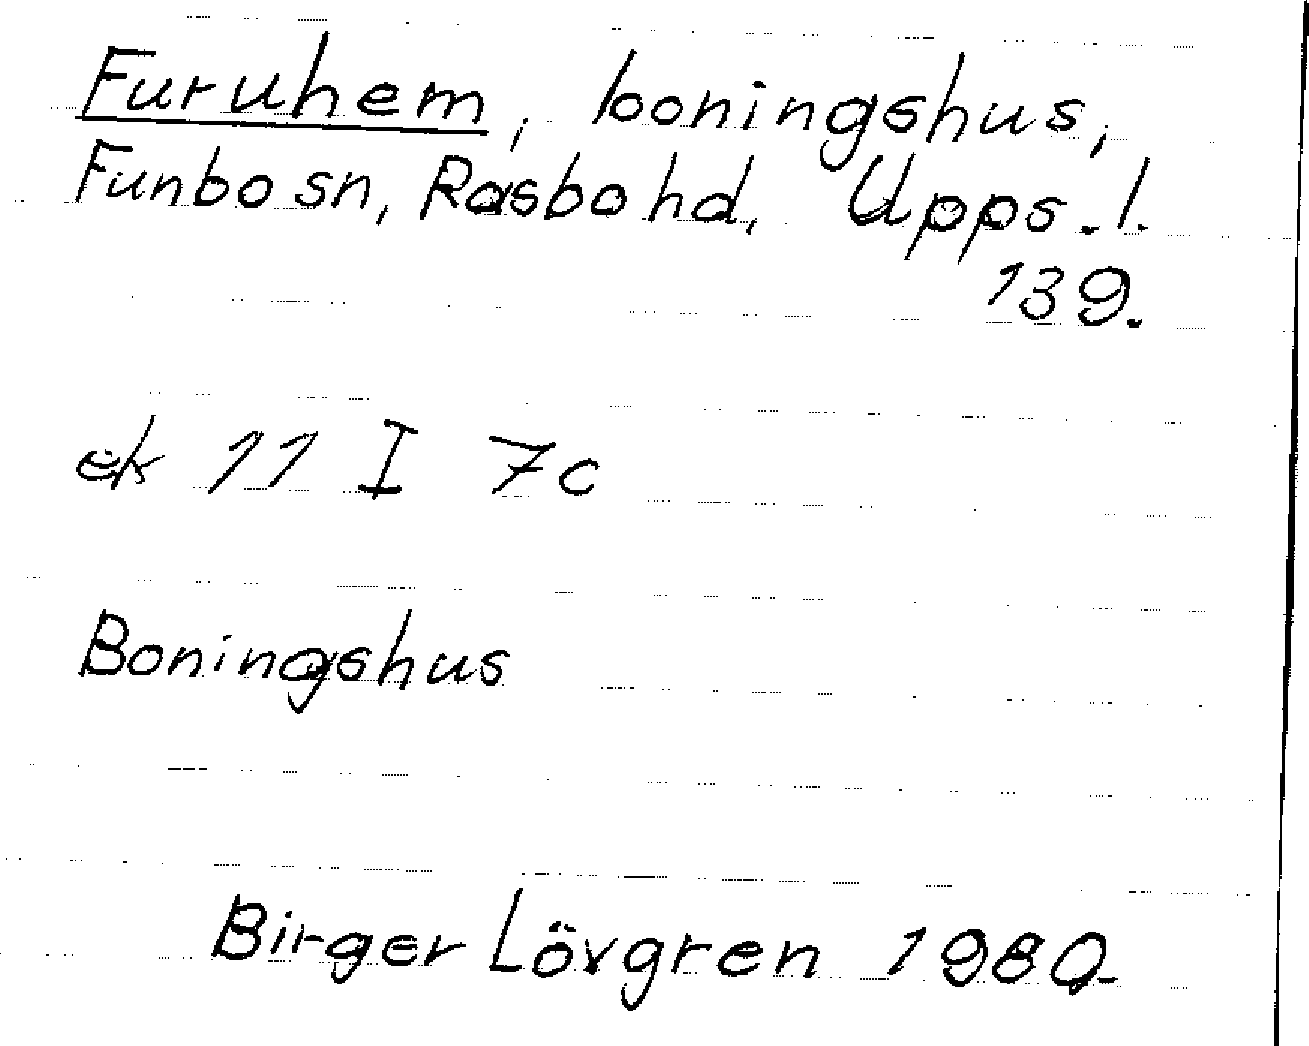 Furuhem, boningshus,
Funbo sn, Rasbo hd, Upps. l.
139.
ek 11 I 7c
Boningshus
Birger Lövgren 1980.